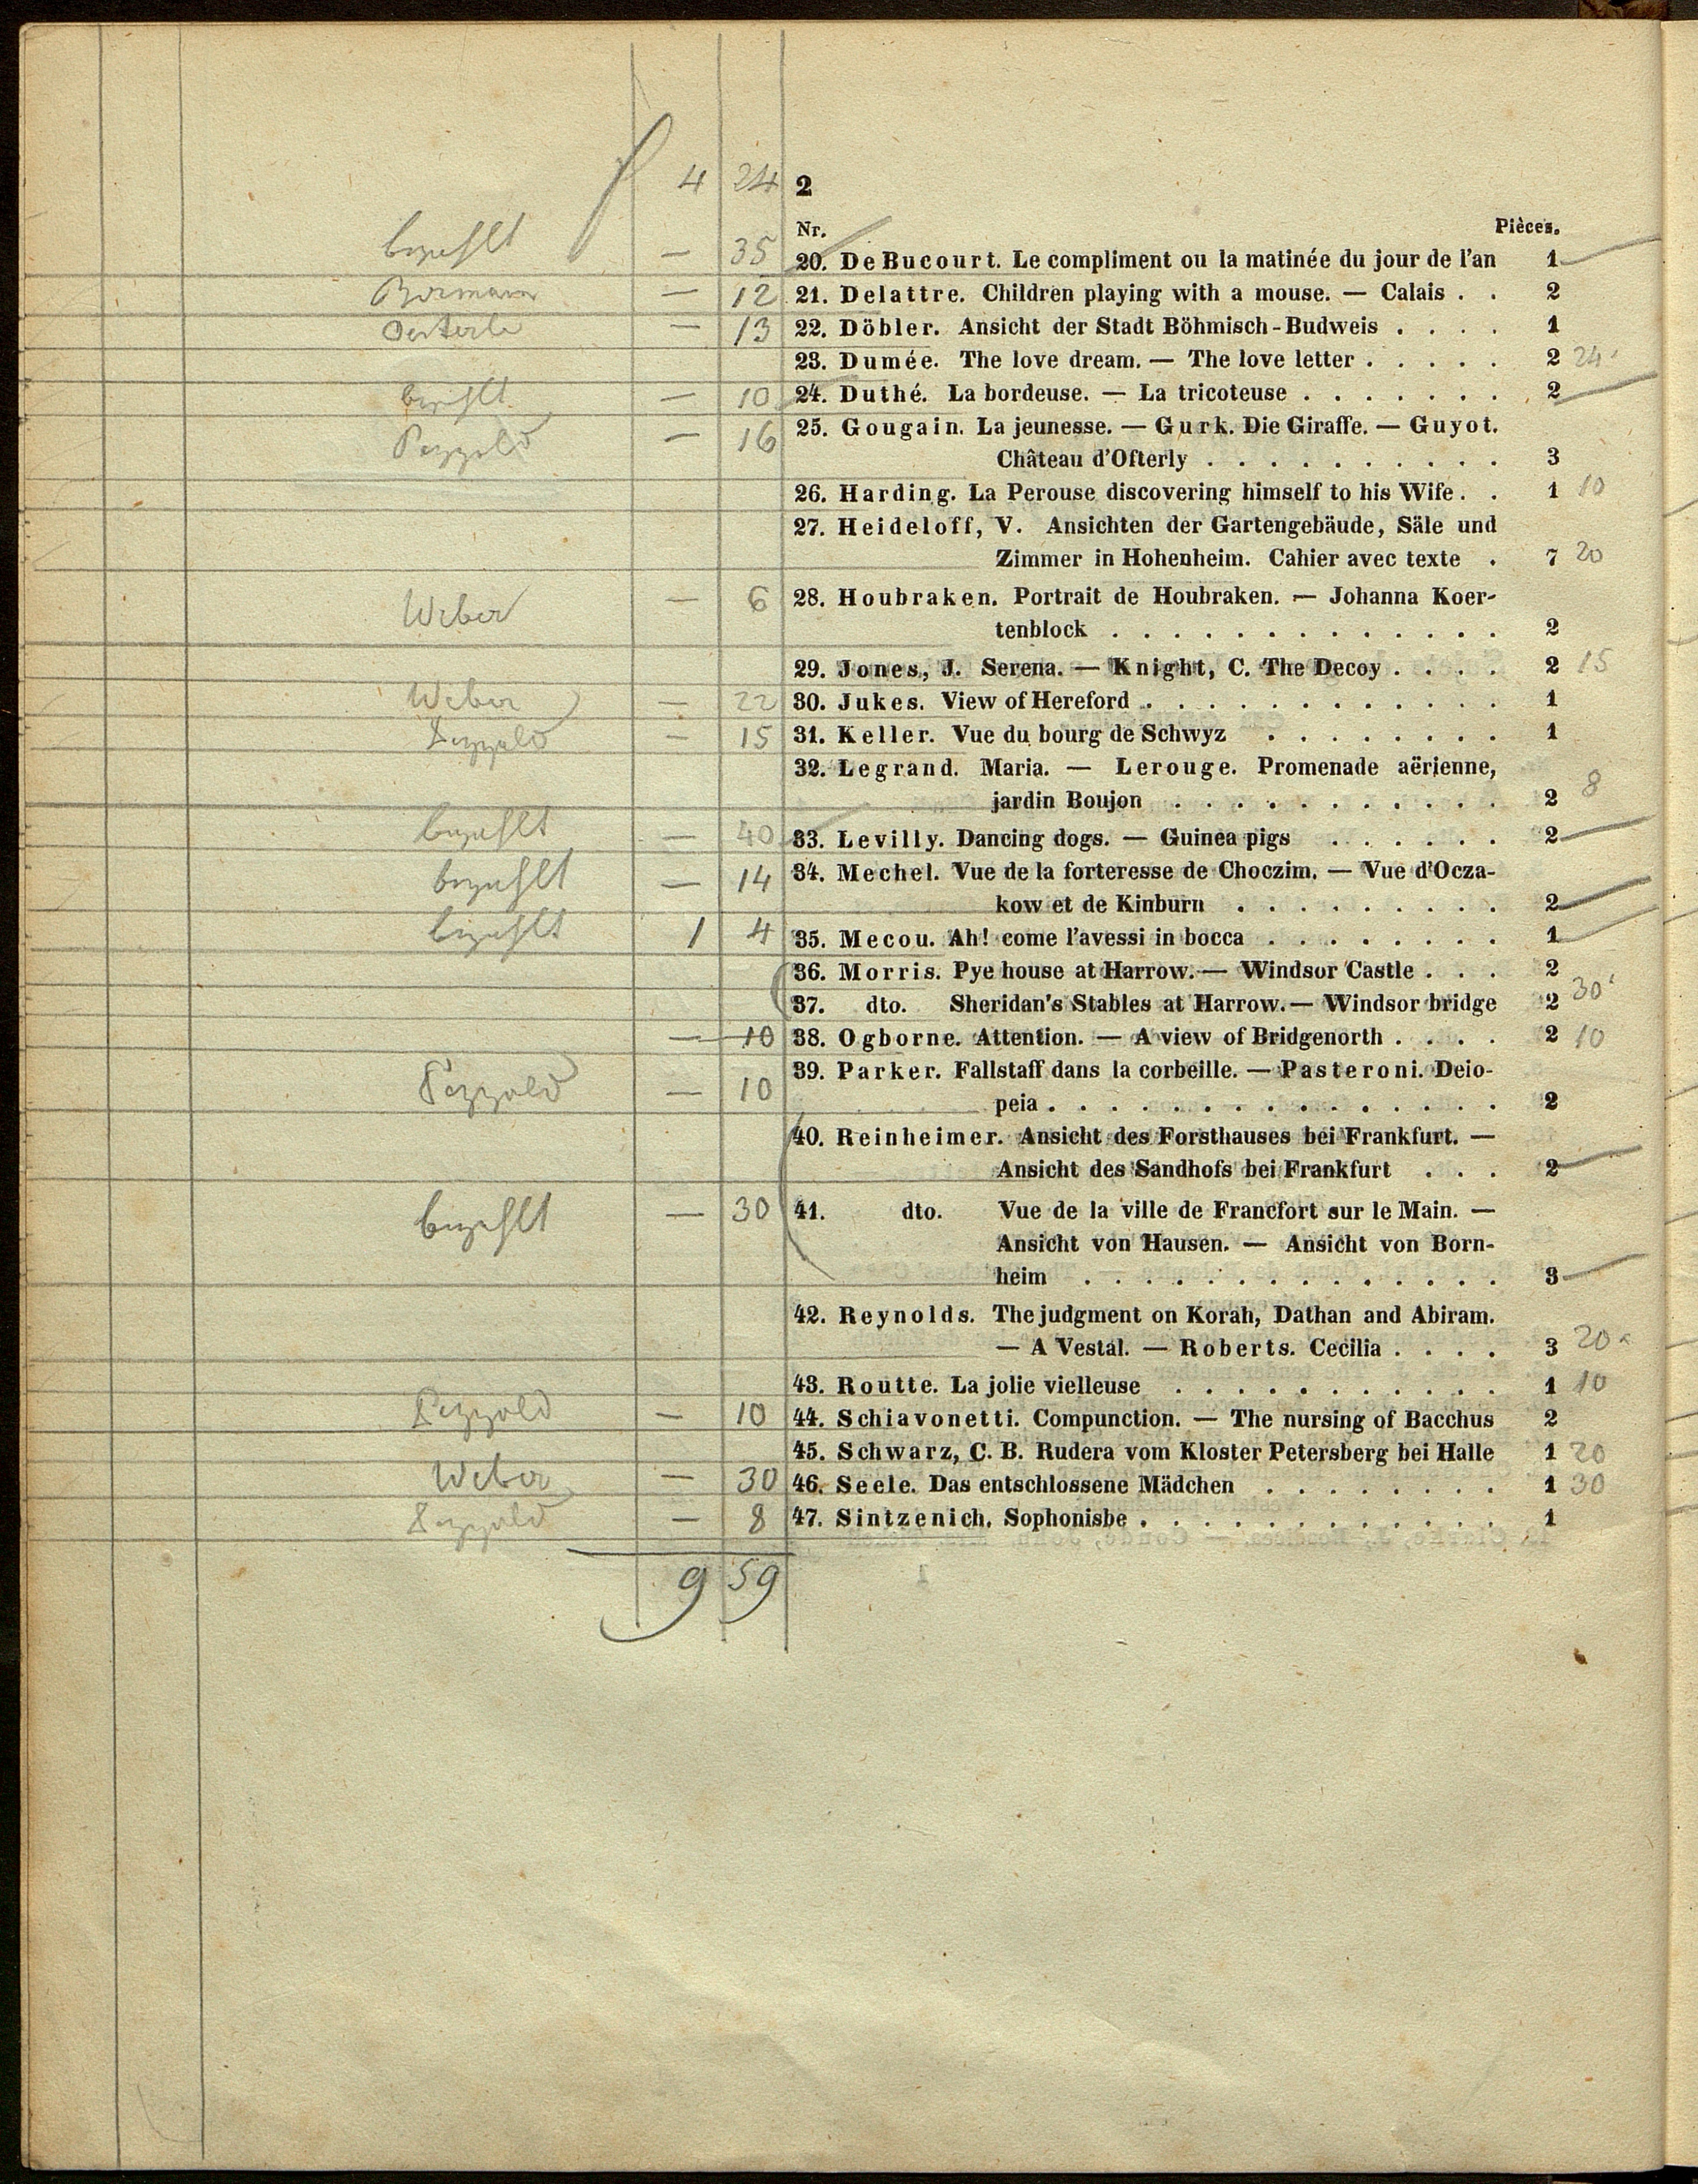 4 24 2
Nr. Pièces.
bezahlt — 35 20. De Bucourt. Le compliment ou la matinée du jour de l'an 1
— 12 21. Delattre. Children playing with a mouse. — Calais . . 2
Oesterle — 13 22. Döbler. Ansicht der Stadt Böhmisch-Budweis . . . . 1
23. Dumée. The love dream. — The love letter . . . . . 2 24
bezahlt — 10 24. Duthé. La bordeuse. — La tricoteuse . . . . . . . 2
Pezzold — 16 25. Gougain. La jeunesse. — Gurk. Die Giraffe. — Guyot.
Château d'Ofterly . . . . . . . . . . 3
26. Harding. La Perouse discovering himself to his Wife . . 1 10
27. Heideloff, V. Ansichten der Gartengebäude, Säle und
Zimmer in Hohenheim. Cahier avec texte . 7 20
Weber — 6 28. Houbraken. Portrait de Houbraken. — Johanna Koer-
tenblock . . . . . . . . . . . . . 2
29. Jones, J. Serena. — Knight, C. The Decoy . . . . 2 15
Weber — 22 30. Jukes. View of Hereford . . . . . . . . . . . . 1
Pezzold — 15 31. Keller. Vue du bourg de Schwyz . . . . . . . . 1
32. Legrand. Maria. — Lerouge. Promenade aërienne,
jardin Boujon . . . . . . . . . . . 2 8
bezahlt — 40 33. Levilly. Dancing dogs. — Guinea pigs . . . . . . 2
bezahlt — 14 34. Mechel. Vue de la forteresse de Choczim. — Vue d'Ocza-
kow et de Kinburn . . . . . . . . . 2
bezahlt 1 4 35. Mecou. Ah! come l'avessi in bocca . . . . . . . . 1
36. Morris. Pye house at Harrow. — Windsor Castle . . . 2
37. dto. Sheridan's Stables at Harrow. — Windsor bridge 2 30
— 10 38. Ogborne. Attention. — A view of Bridgenorth . . . . 2 10
Pezzold — 10 39. Parker. Fallstaff dans la corbeille. — Pasteroni. Deio-
peia . . . . . . . . . . . . . . . 2
40. Reinheimer. Ansicht des Forsthauses bei Frankfurt. —
Ansicht des Sandhofs bei Frankfurt . . . 2
bezahlt — 30 41. dto. Vue de la ville de Francfort sur le Main. —
Ansicht von Hausen. — Ansicht von Born-
heim . . . . . . . . . . . . . . 3
42. Reynolds. The judgment on Korah, Dathan and Abiram.
— A Vestal. — Roberts. Cecilia . . . . 3 20
43. Routte. La jolie vielleuse . . . . . . . . . . . 1 10
Pezzold — 10 44. Schiavonetti. Compunction. — The nursing of Bacchus 2
45. Schwarz, C. B. Rudera vom Kloster Petersberg bei Halle 1 20
Weber — 30 46. Seele. Das entschlossene Mädchen . . . . . . . . 1 30
Pezzold — 8 47. Sintzenich. Sophonisbe . . . . . . . . . . . . 1
9 59